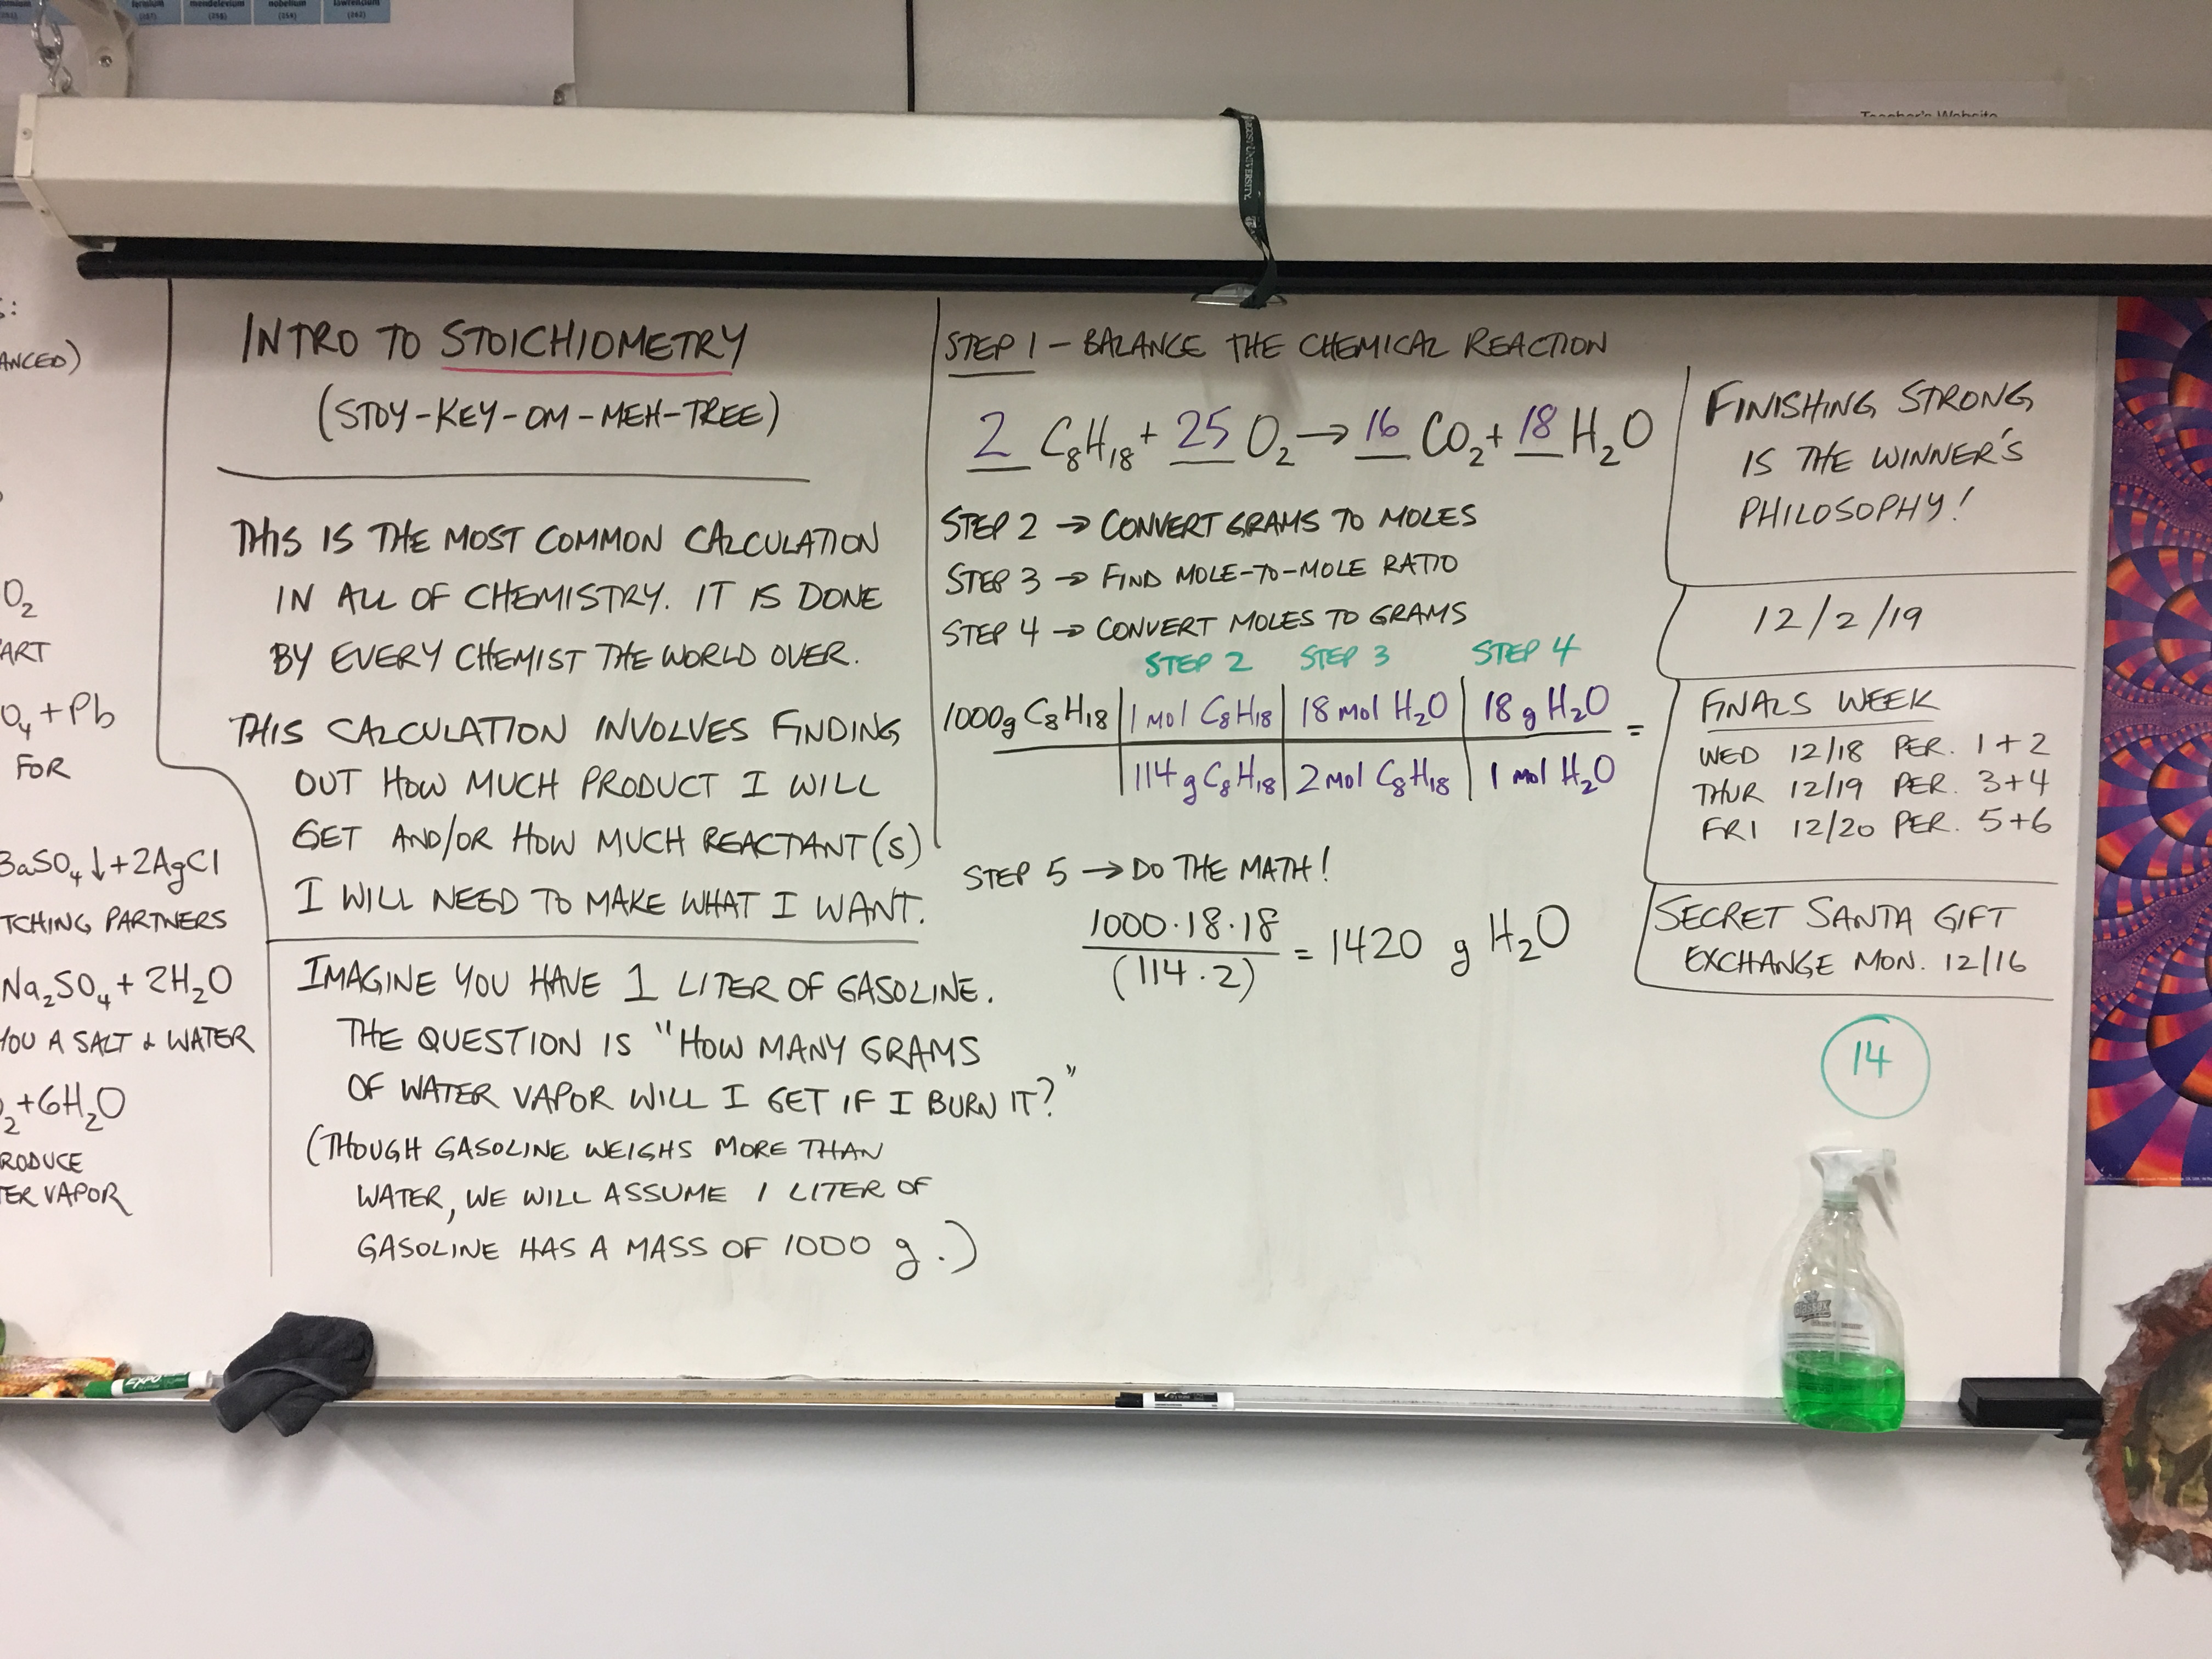 fermium mendelevium nobelium lawrencium
(257) (258) (259) (262)
Teacher's Website
UNIVERSITY
ANCED)
O₂
ART
O₄ + Pb
FOR
BaSO₄↓ + 2AgCl
TCHING PARTNERS
Na₂SO₄ + 2H₂O
YOU A SALT & WATER
₂ + 6H₂O
RODUCE
TER VAPOR
INTRO TO STOICHIOMETRY
(STOY-KEY-OM-MEH-TREE)
THIS IS THE MOST COMMON CALCULATION
IN ALL OF CHEMISTRY. IT IS DONE
BY EVERY CHEMIST THE WORLD OVER.
THIS CALCULATION INVOLVES FINDING
OUT HOW MUCH PRODUCT I WILL
GET AND/OR HOW MUCH REACTANT(S)
I WILL NEED TO MAKE WHAT I WANT.
IMAGINE YOU HAVE 1 LITER OF GASOLINE.
THE QUESTION IS "HOW MANY GRAMS
OF WATER VAPOR WILL I GET IF I BURN IT?"
(THOUGH GASOLINE WEIGHS MORE THAN
WATER, WE WILL ASSUME 1 LITER OF
GASOLINE HAS A MASS OF 1000 g.)
STEP 1 - BALANCE THE CHEMICAL REACTION
2 C₈H₁₈ + 25 O₂ → 16 CO₂ + 18 H₂O
STEP 2 → CONVERT GRAMS TO MOLES
STEP 3 → FIND MOLE-TO-MOLE RATIO
STEP 4 → CONVERT MOLES TO GRAMS
STEP 2 STEP 3 STEP 4
1000g C₈H₁₈ | 1 mol C₈H₁₈ | 18 mol H₂O | 18 g H₂O =
114 g C₈H₁₈ | 2 mol C₈H₁₈ | 1 mol H₂O
STEP 5 → DO THE MATH!
1000·18·18
= 1420 g H₂O
(114·2)
FINISHING STRONG
IS THE WINNER'S
PHILOSOPHY!
12/2/19
FINALS WEEK
WED 12/18 PER. 1+2
THUR 12/19 PER. 3+4
FRI 12/20 PER. 5+6
SECRET SANTA GIFT
EXCHANGE MON. 12/16
14
EXPO